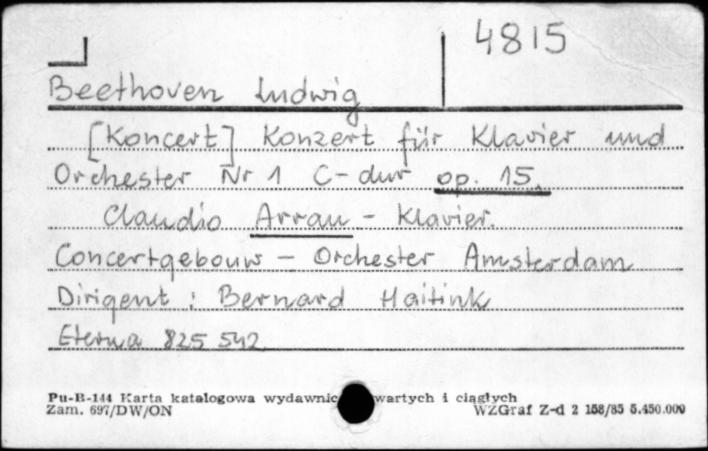 4815
Beethoven Ludwig
[Koncert] Konzert für Klavier und
Orchester Nr 1 C-dur op. 15.
Claudio Arrau - Klavier.
Concertgebouw - Orchester Amsterdam
Dirigent : Bernard Haitink
Eterna 825 542
Pu-B-144 Karta katalogowa wydawnic wartych i ciągłych
Zam. 697/DW/ON WZGraf Z-d 2 158/85 5.450.000